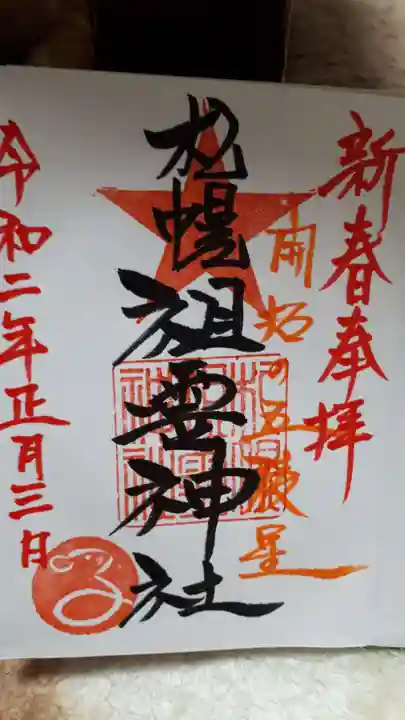 新春奉拝
開拓の五稜星
札幌祖霊神社
令和二年正月三日